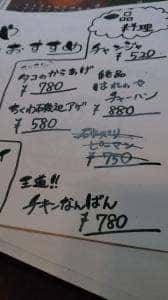 一品
料理
おすすめ
チャンジャ
¥520
タコのからあげ
¥780
絶品
はれのや
チャーハン
¥880
ちくわ石垣辺アゲ
¥580
ピーマン
¥750
王道!!
チキンなんばん
¥780